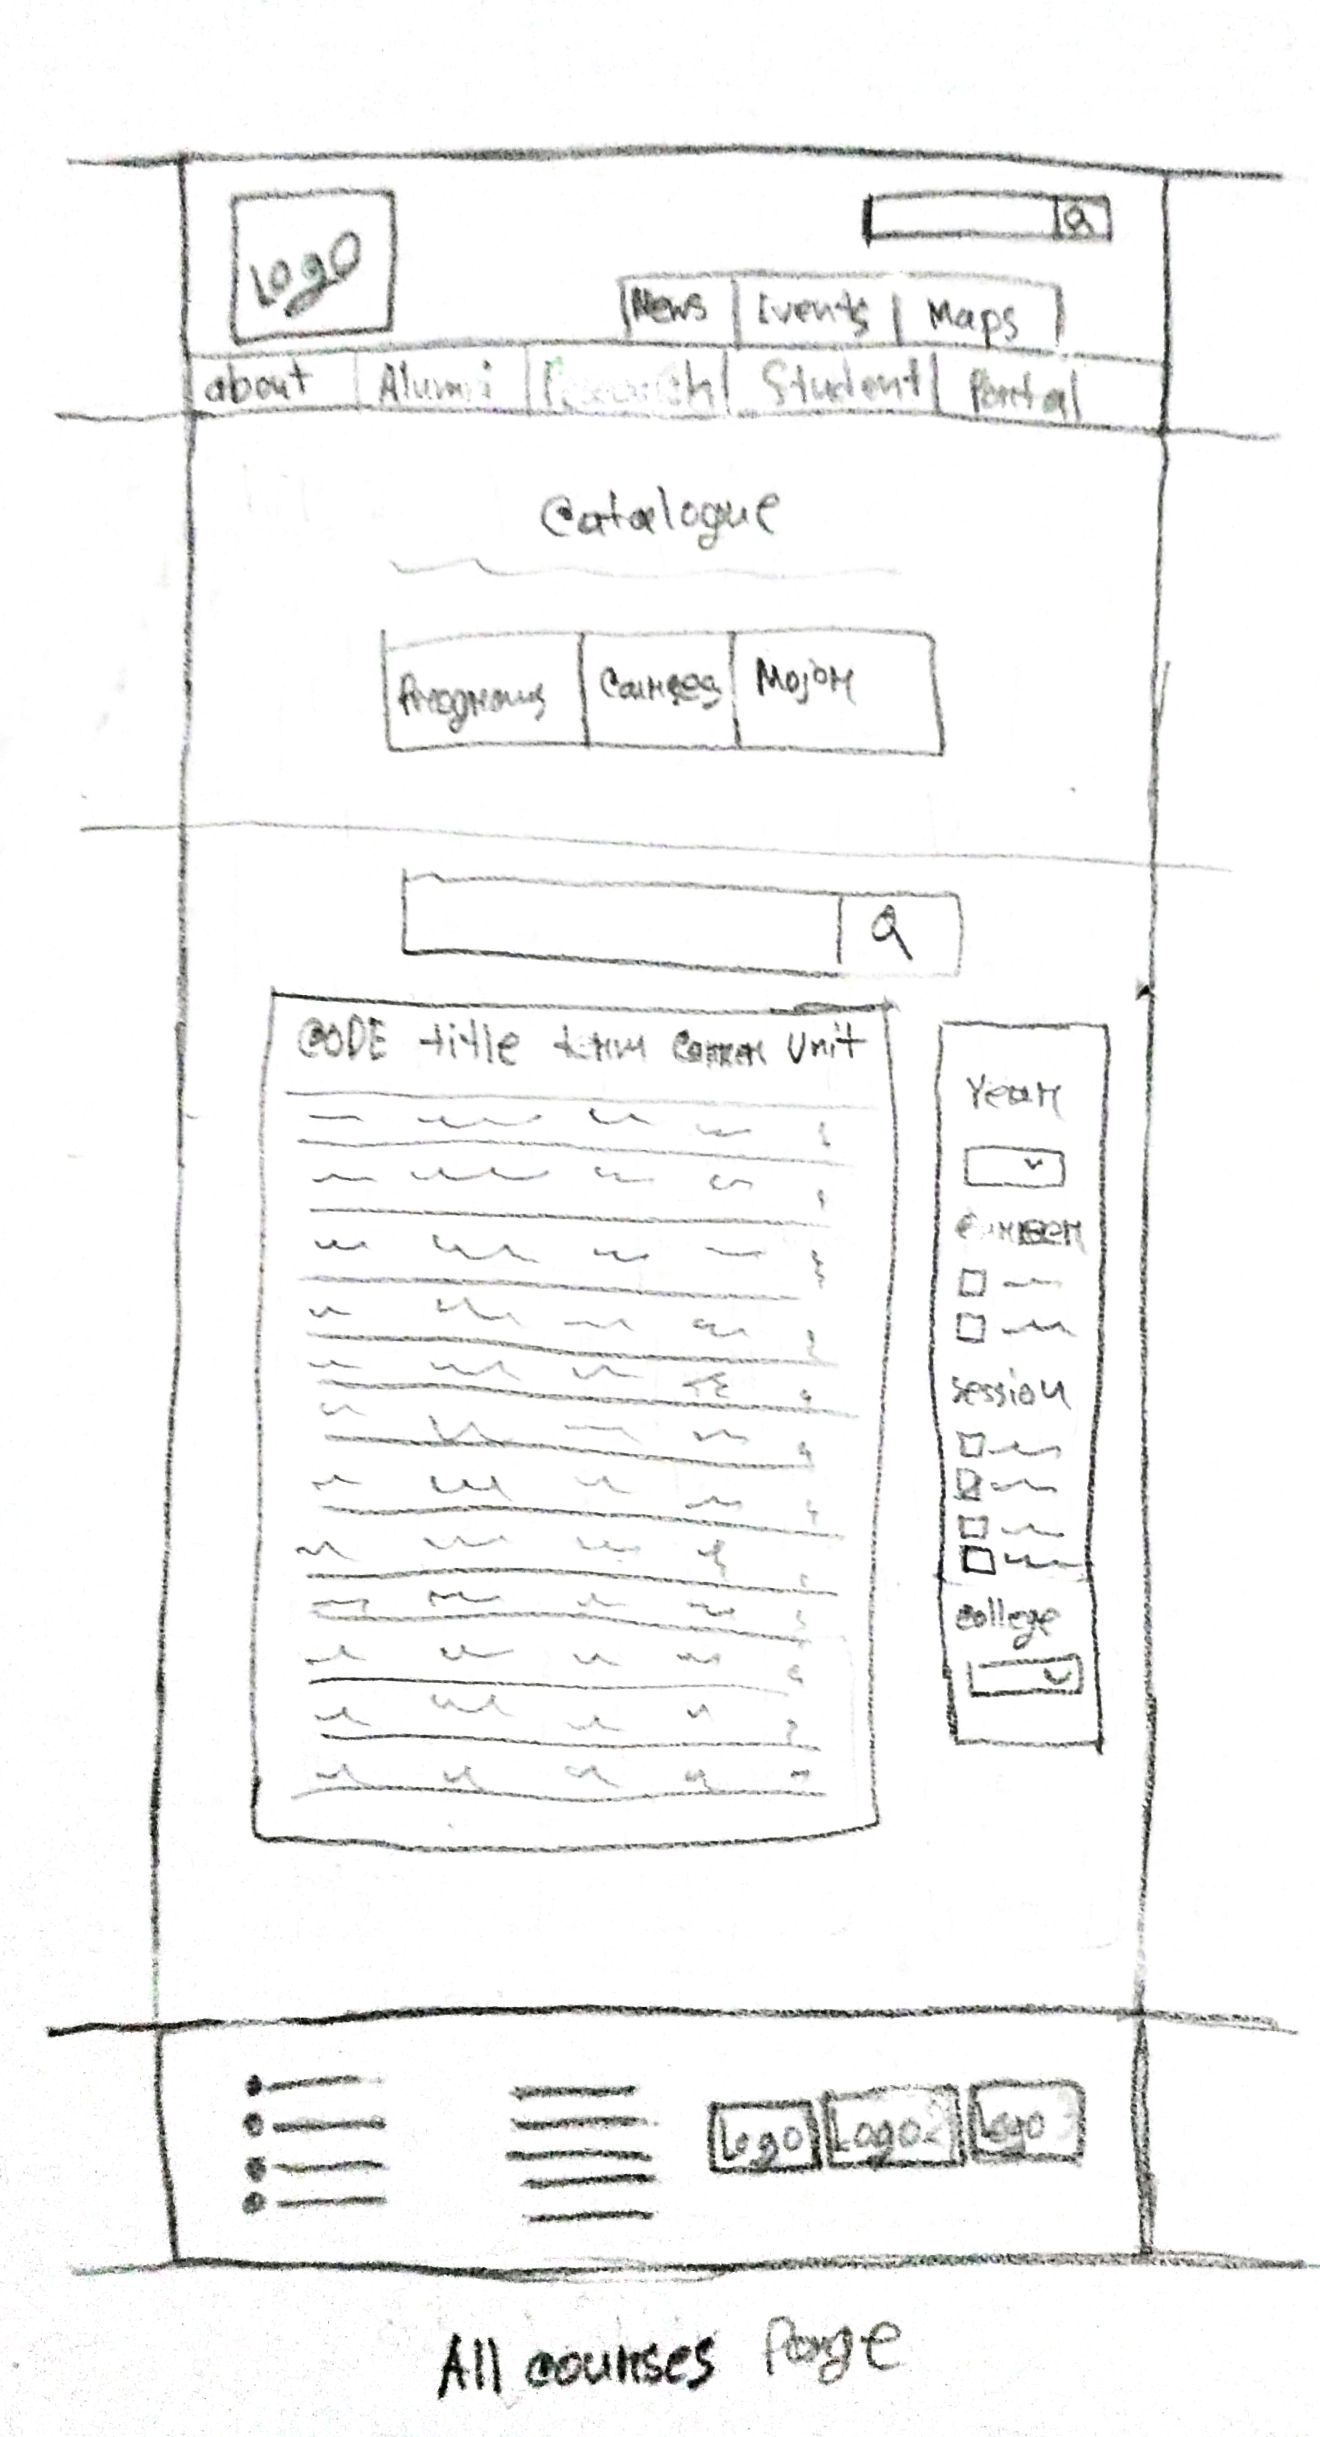 Logo
News Events Maps
about Alumni Research Student Portal
Catalogue
Programs Courses Major
CODE title term Career Unit
Year
Career
session
college
Logo Logo2 Logo 3
All courses Page